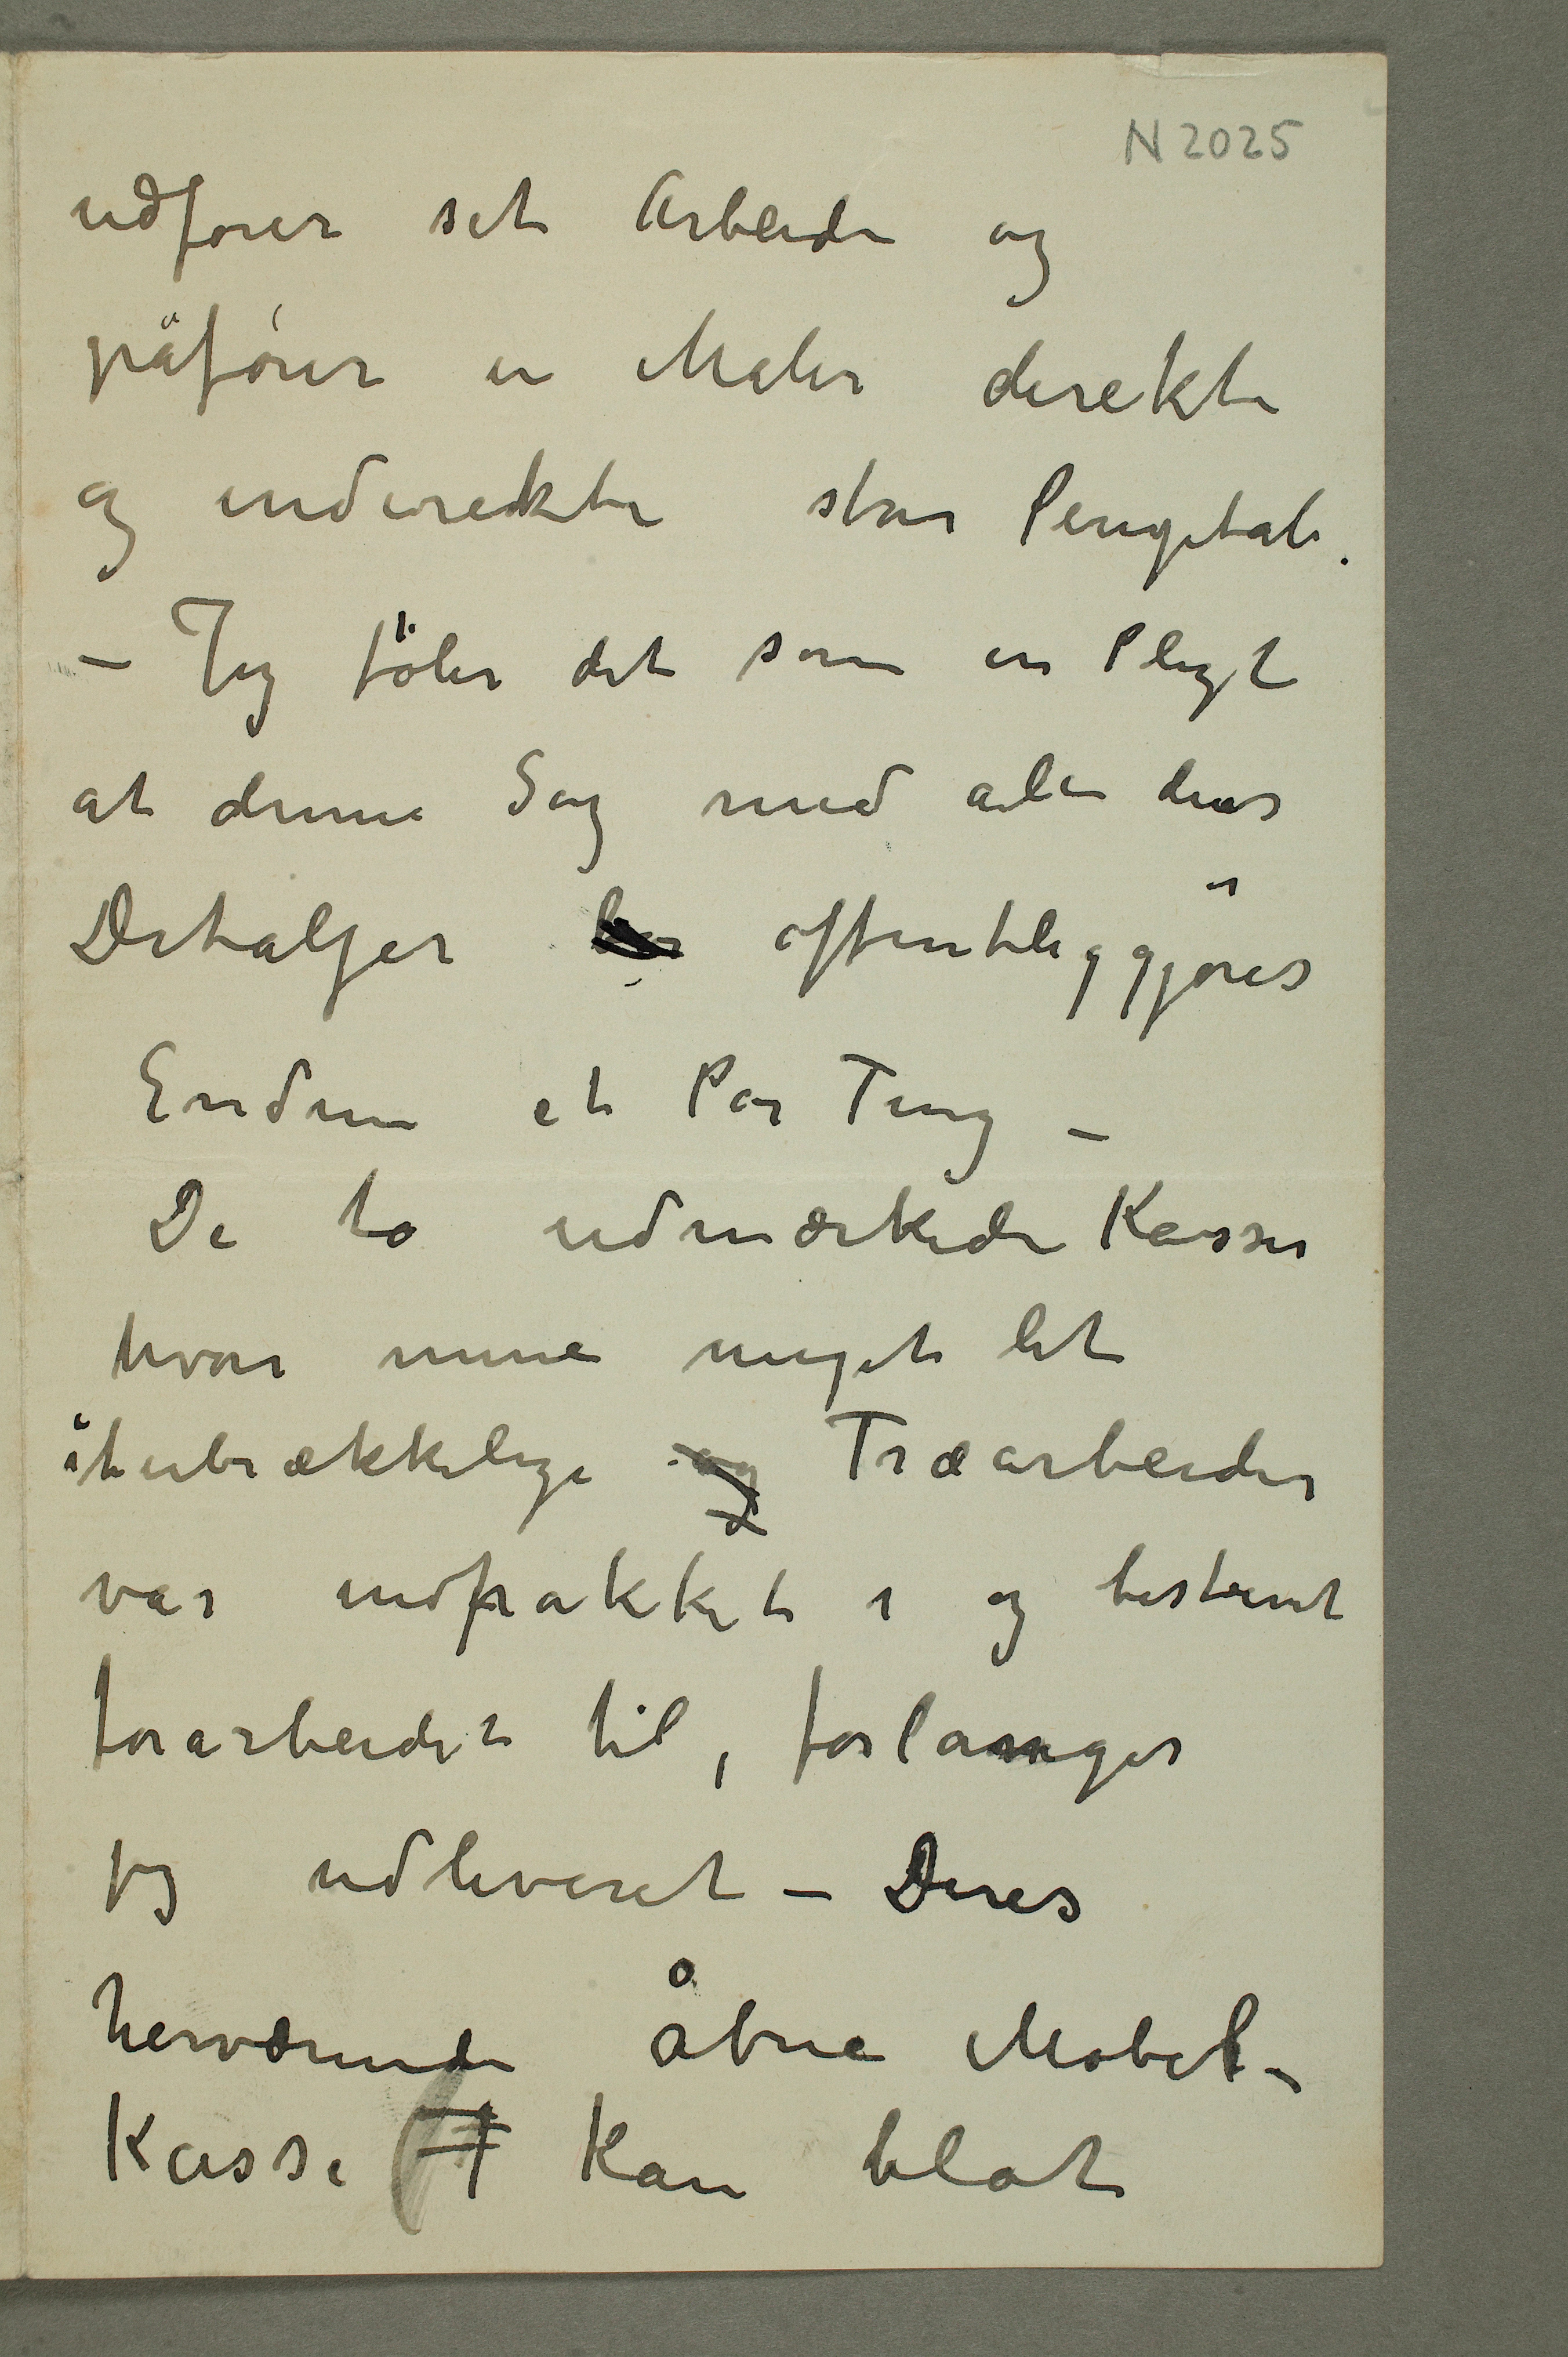 N 2025
udfører sit Arbeide og
påfører en Maler direkte
og indirekte stor Pengetab.
– Jeg föler det som en Pligt
at denne Sag med alle dens
Detaljer bør offentliggjöres
Endnu et Par Ting –
De to udmærkede Kasser
hvori mine meget let
itubrækkelige og Træarbeider
var indpakket i og bestemt
forarbeidet til, forlanger
jeg udleveret – Deres
herværende åbne Möbel-
Kasse kan blot